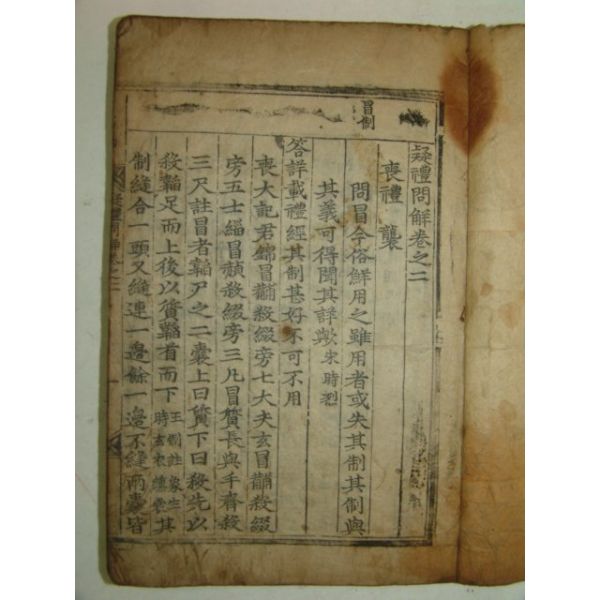 疑禮問解卷之二
喪禮 襲
冒制
問冒今俗鮮用之雖用者或失其制其制與
其義可得聞其詳歟 宋時烈
答詳載禮經其制甚好不可不用
喪大記君錦冒黼殺綴旁七大夫玄冒黼殺綴
旁五士緇冒赬殺綴旁三凡冒質長與手齊殺
三尺註冒者韜尸之二囊上曰質下曰殺先以
殺韜足而上後以質韜首而下 王制註象生時玄衣纁裳 其
制縫合一頭又縫連一邊餘一邊不縫兩囊皆
疑禮問解卷之二